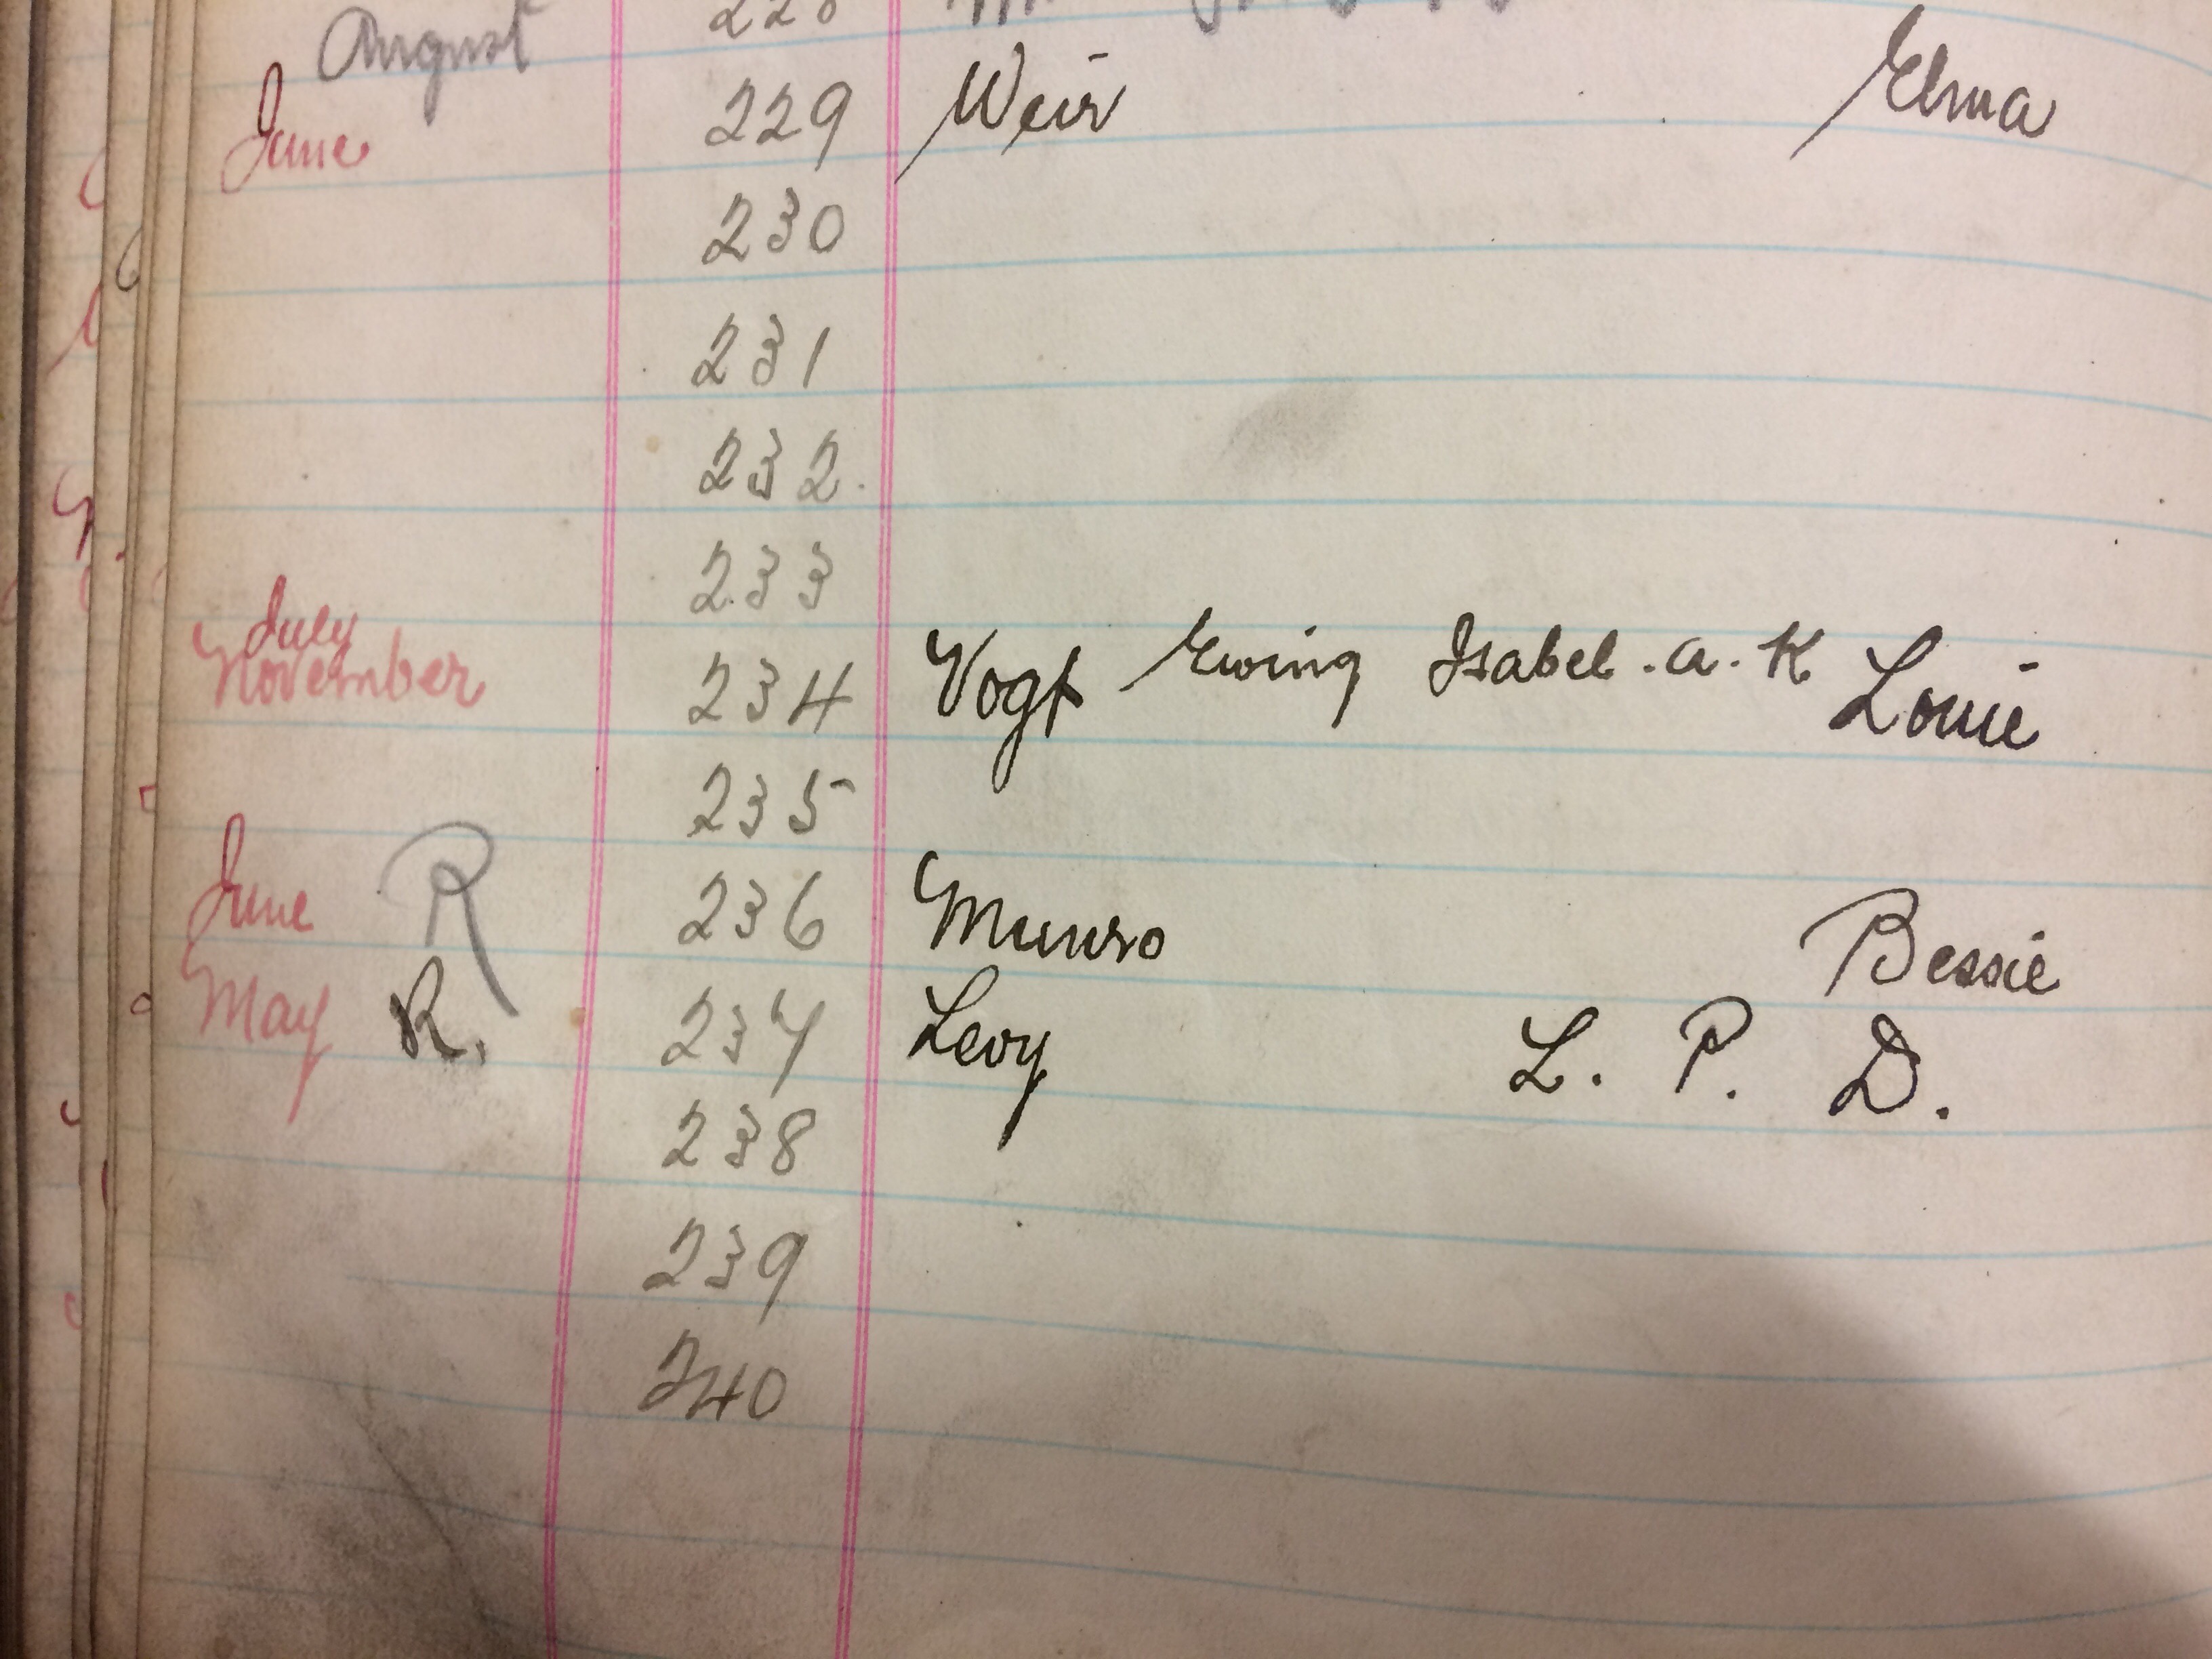 August 228
June 229 Weir Elma
230
231
232.
233
July
November 234 Vogt Ewing Isabel. a. K Louie
235
June R 236 Munro Bessie
May R. 237 Levy L. P. D.
238
239
240